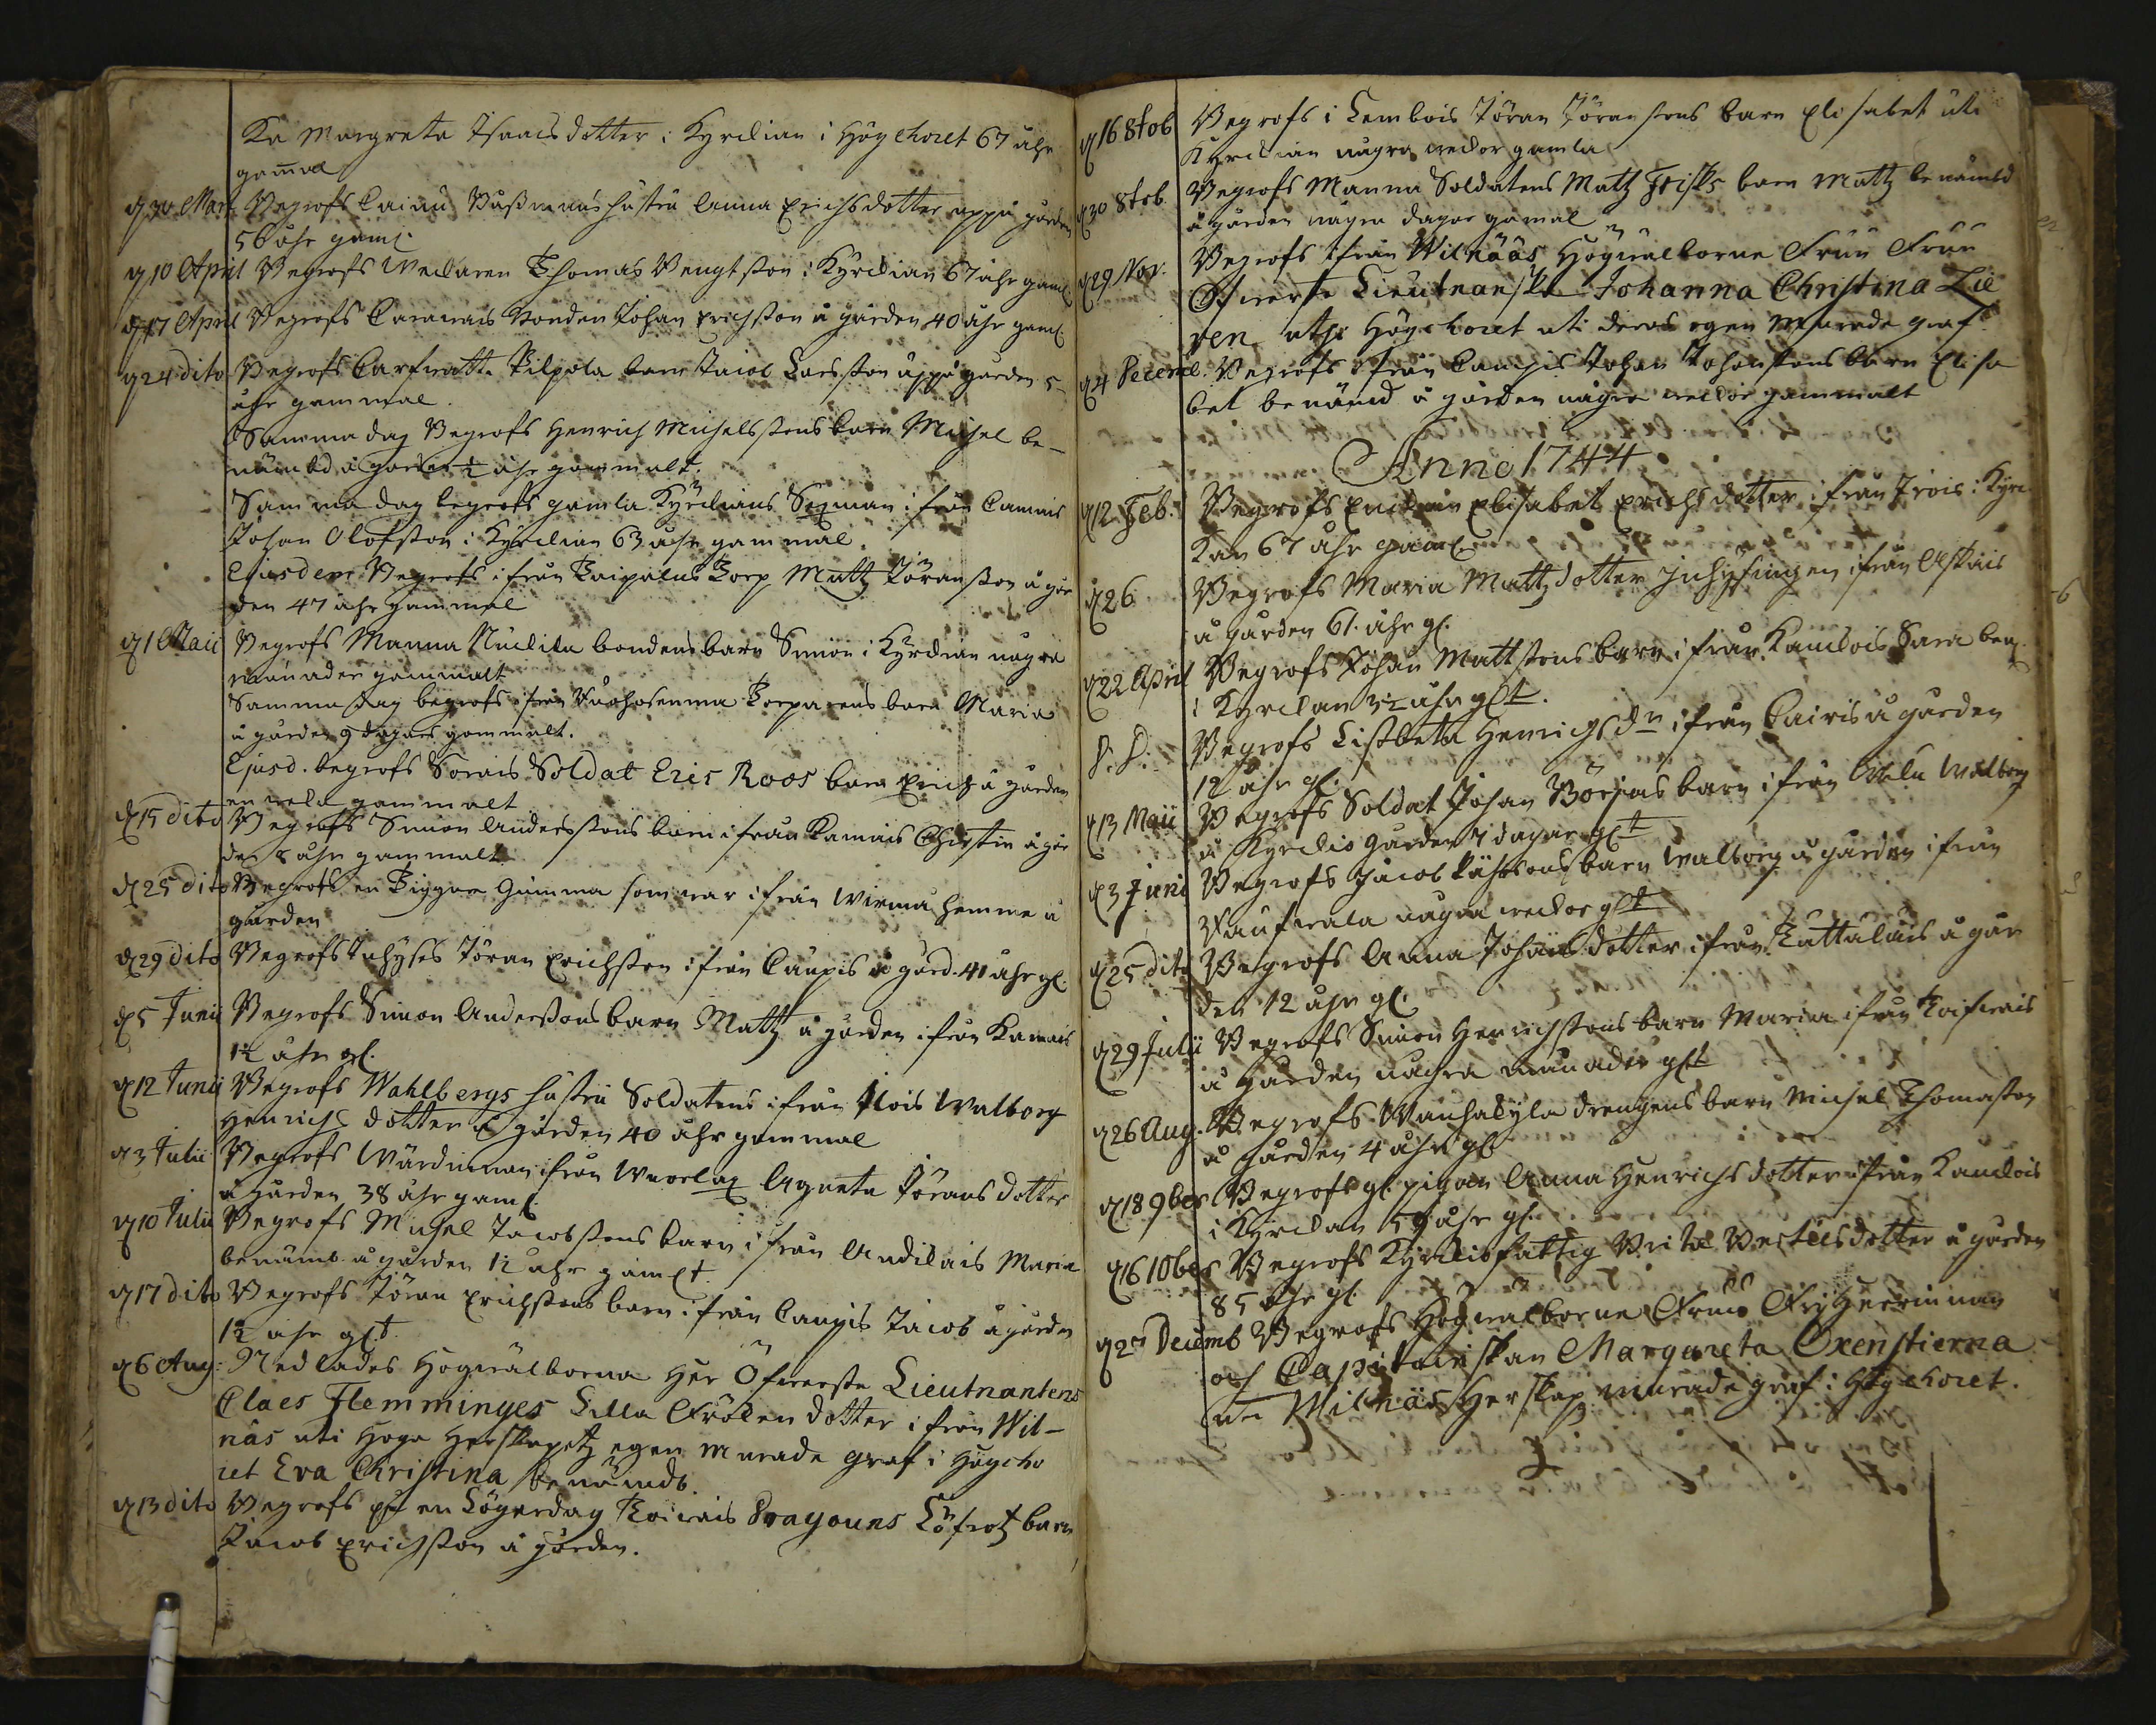 Ka Margreta Isaacs dotter i Kyrckian i Högchoret 67 åhr
gamal
d 30 Mart. Begrofs hustru Anna Erichsdotter uppå gården
56 åhr gaml.
d 10 April Begrofs Thomas Bengtsson i Kyrckian 67 åhr gaml
d 17 April Begrofs bonden Johan Erichsson å gården 40 åhr gaml
d 24 dito Begrofs Pilpola barn Jacob Larsson uppå gården 5
åhr gammal.
Samma dag Begrofs Henrich Michelssons barn Michel be-
nämbd å gården ½ åhr gammalt.
Samma dag begrofs gamla Kyrckians Sexman ifrån
Johan Olofsson i Kyrckian 63 åhr gammal.
Ejusdem Begrofs ifrån Torp Mattz Jöransson å går
den 47 åhr gammal
d 1 Maii Begrofs Manna Nuckila bondens barn Simon i Kyrckian några
månader gammalt
Samma dag begrofs ifrån barn Maria
å gården 9 dagars gammalt.
Ejusd. begrofs Sorais Soldat Eric Roos barn Erich å gården
en wecka gammalt
d 15 dito Begrofs Simon Anderssons barn ifrån Kamais Christin å går
den åhr gammalt
d 25 dito Begrofs en Tiggar Gumma som war ifrån Wirmu hemma å
gården
d 29 dito Begrofs Inhyses Jöran Erichsson ifrån Caupis å gård. 41 åhr gl.
d 5 Junii Begrofs Simon Anderssons barn Mattz å gården ifrån Kamais
1½ åhr gl.
d 12 Junii Begrofs Wahlbergs hustru Soldatens ifrån Walborg
Henrichs dotter å gården 40 åhr gammal
d 3 Julii Begrofs Wärdinnan ifrån Agneta Jörans dotter
å gården 38 åhr gaml.
d 10 Julii Begrofs Michel Jacobssons barn ifrån Andilais Maria
benämd. å gården 1½ åhr gamlt.
d 17 dito Begrofs Jöran Erichssons barn ifrån Caupis Jacob å gården
1½ åhr glt.
d 6 Aug: Nedlades Högwälborna Her Öfwerste Lieutnantens
Claes Flemminges Lilla Fröken dotter ifrån Wil-
näs uti Höga Herskapetz egen murade graf i Högcho
ret Eva Christina benämdt.
d 13 dito Begrofs på en Lögerdag Dragouns barn
Jacob Erichsson å gården.
d 16 8tob Begrofs i Lembois Jöran Jöranssons barn Elisabet uti
Kyrckian några weckor gamla
d 30 8tob. Begrofs Manna Soldatens Mattz Frisks barn Mattz benämbd
å gården några dagar gamal
d 29 Nov. Begrofs ifrån Wilnääs Högwälborne Fruu Fruu
Öfwerste Lieutnanska Johanna Christina Lie
ven uthi Högchoret uti deras egen Murade graf
d 4 Decemb. Begrofs ifrån Caupis Johan Johanssons barn Elisa
bet benämd å gården några weckor gammalt
Anno 1744
d 12 Feb. Begrofs Enckian Elisabet Erichs dotter ifrån Irois i Kyrc
kan 67 åhr gaml
d 26 Begrofs Maria Mattz dotter Inhysingen ifrån Askais
å gården 61 åhr gl.
d 22 April Begrofs Johan Mattssons barn ifrån Kanckois Sara ben.
i Kyrckan 3½ åhr glt.
D. D. Begrofs Lisbeta Henrichs dr ifrån Cairis å gården
12 åhr gl.
d 13 Maii Begrofs Soldat Johan Börjas barn ifrån Walborg
å Kyrckio gården 7 dagar glt
d 3 Juni Begrofs Jacob barn Walborg å gården ifrån
några weckor glt
d 25 dito Begrofs Anna Johans dotter ifrån Rattulais å går
den 12 åhr gl.
d 29 Julii Begrofs Simon Henrichssons barn Maria ifrån
å gården några månader glt
d 26 Aug. Begrofs Wanhakyla drengens barn Michel Thomasson
å gården 4 åhr gl
d 18 9ber Begrofs gl. pigan Anna Henrichsdotter ifrån Kanckois
i Kyrckan 59 åhr gl.
d 16 10ber Begrofs Kyrckiofattig Brita Bertilsdotter å gården
85 åhr gl.
d 27 Decemb Begrofs Högwälborne Fruu FryHerrinnan
och Capitainskan Margareta Oxenstierna
uti Wilnäs Herskap murade graf i Högchoret.